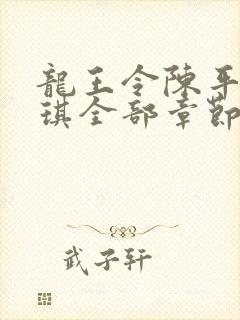 龍王令陳平
琪全部章節
武子軒